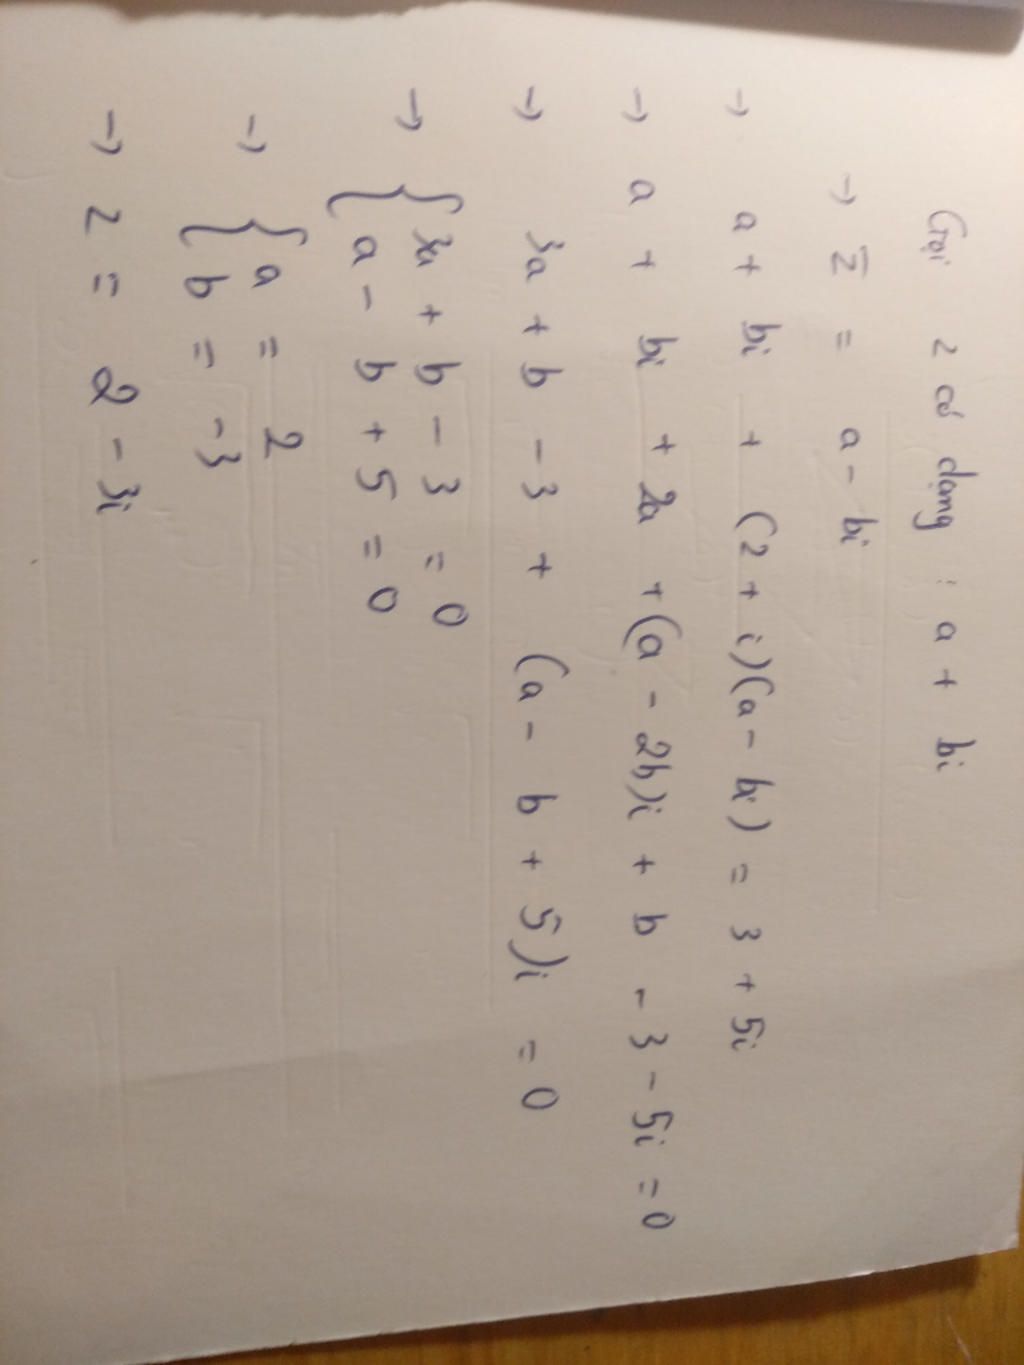 Gọi z có dạng : a + bi
→ z̄ = a - bi
→ a + bi + (2 + i)(a - bi) = 3 + 5i
→ a + bi + 2a + (a - 2b)i + b - 3 - 5i = 0
→ 3a + b - 3 + (a - b + 5)i = 0
→ { 3a + b - 3 = 0
{ a - b + 5 = 0
→ { a = 2
{ b = -3
→ z = 2 - 3i